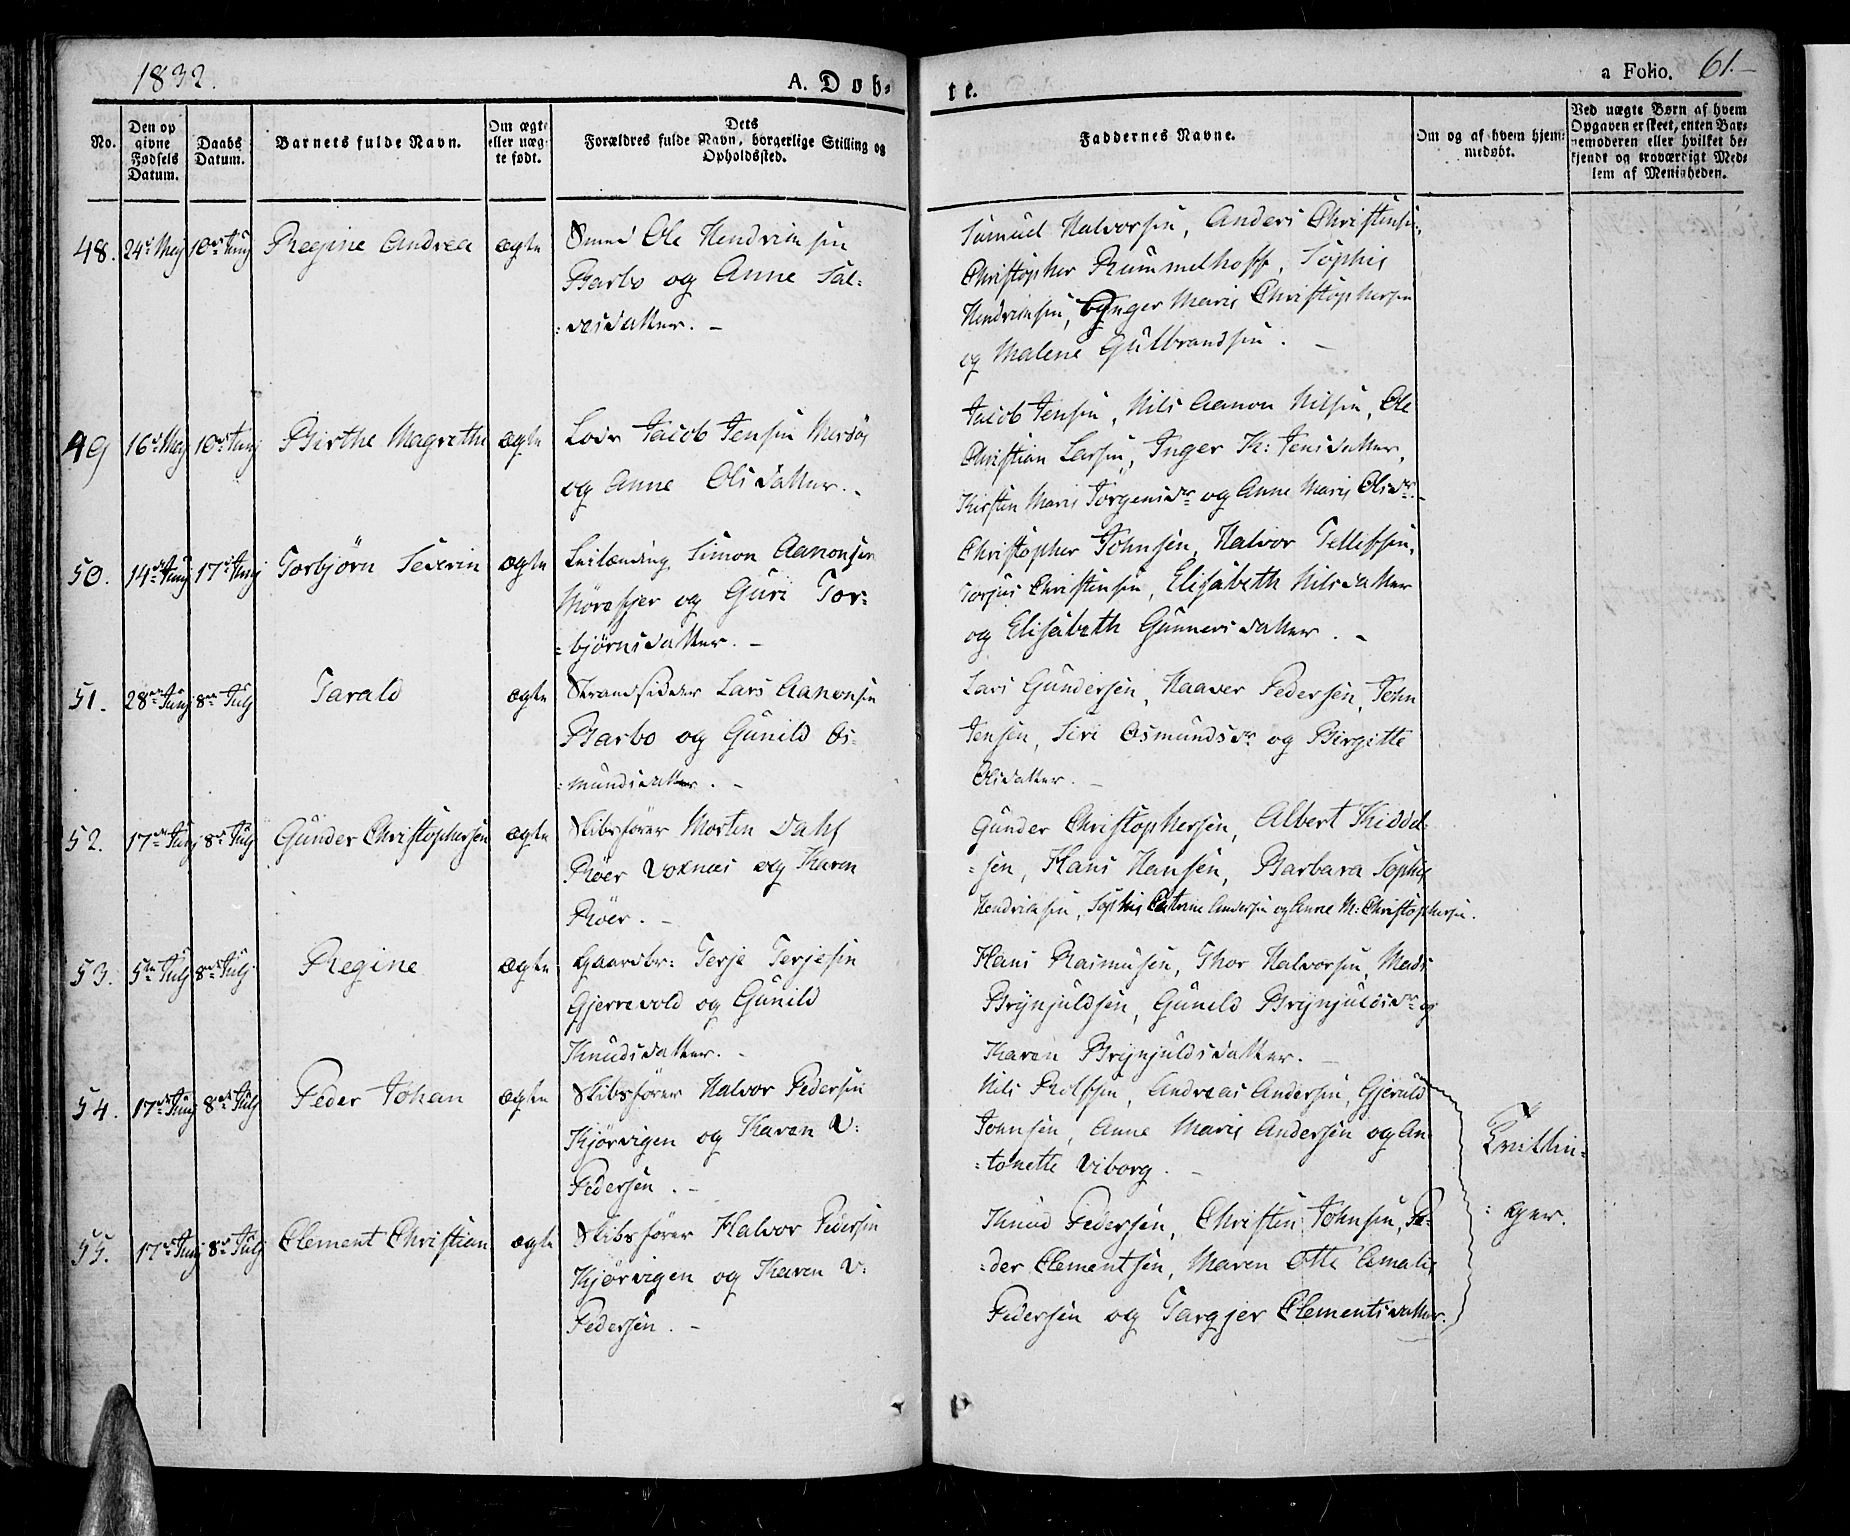 1832.
A. Døb-
te.
a Folio. 61.-
No.
Den op
givne
Fødsels
Datum.
Daabs
Datum.
Barnets fulde Navn.
Om ægte
eller uæg-
te født.
Dets
Forældres fulde Navn, borgerlige Stilling og
Opholdssted.
Faddernes Navne.
Om og af hvem hjem-
medøbt.
Ved uægte Børn af hvem
Opgaven er skeet, enten Bar-
nemoderen eller hvilket be-
kjendt og troværdigt Med-
lem af Menigheden.
48. 24de Maj 10de Junj Regine Andrea ægte Smed Ole Hendriksen
Barbo og Anne Sal-
=vesdatter. -
Samuel Halvorsen, Anders Christensen,
Christopher Rummelhoff, Sophie
Hendriksen, Inger Marie Christophersen
og Malene Gulbrandsen. -
49 16de Maj 10de Junj Birthe Magrethe ægte Lods Jacob Jensen Merdøe
og Anne Olsdatter. -
Jacob Jensen, Nils Aanon Nilsen, Ole
Christian Larsen, Inger K: Jensdatter,
Kirsten Marie Jørgensdr og Anne Marie Olsdr. -
50. 14de Junj 17de Junj Torbjørn Severin ægte Leilænding Simon Aanonsen
Mørefjer og Guri Tor-
=bjørnsdatter. -
Christopher Johnsen, Halvor Tellefsen,
Torjus Christensen, Elisabeth Nilsdatter
og Elisabeth Gunnersdatter. -
51. 28de Junj 8de Julj Tarald ægte Strandsidder Lars Aanonsen
Barbo og Gunild Os-
=mundsdatter. -
Lars Gundersen, Haaver Pedersen, John
Jensen, Siri Osmundsdr og Birgitte
Olsdatter. -
52. 17de Junj 8de Julj Gunder Christophersen ægte Skibsfører Morten Dahl
Røer Voxnæs og Karen
Røer. -
Gunder Christophersen, Albert Kiddel-
=sen, Hans Hansen, Barbara Sophie
Hendriksen, Sophie Catrine Andersen og Anne M: Christophersen.
53. 5te Julj 8de Julj Regine ægte Gaardbr: Terje Terjesen
Gjerrevold og Gunild
Knudsdatter. -
Hans Rasmusen, Thor Halvorsen, Mads
Brynjuldsen, Gunild Brynjuldsdr og
Karen Brynjuldsdatter. -
54. 17de Junj 8de Julj Peder Johan ægte Skibsfører Halvor Pedersen
Kjørvigen og Karen V:
Pedersen. -
Nils Rolfsen, Andreas Andersen, Gjeruld
Johnsen, Anne Marie Andersen og An-
=tonette Viborg. -
Tvillin-
=ger.
55. 17de Junj 8de Julj Clement Christian ægte Skibsfører Halvor Pedersen
Kjørvigen og Karen V:
Pedersen. -
Knud Pedersen, Christen Johnsen, Pe-
=der Clementsen, Maren Otte Amalie
Pedersen og Targjer Clementsdatter.